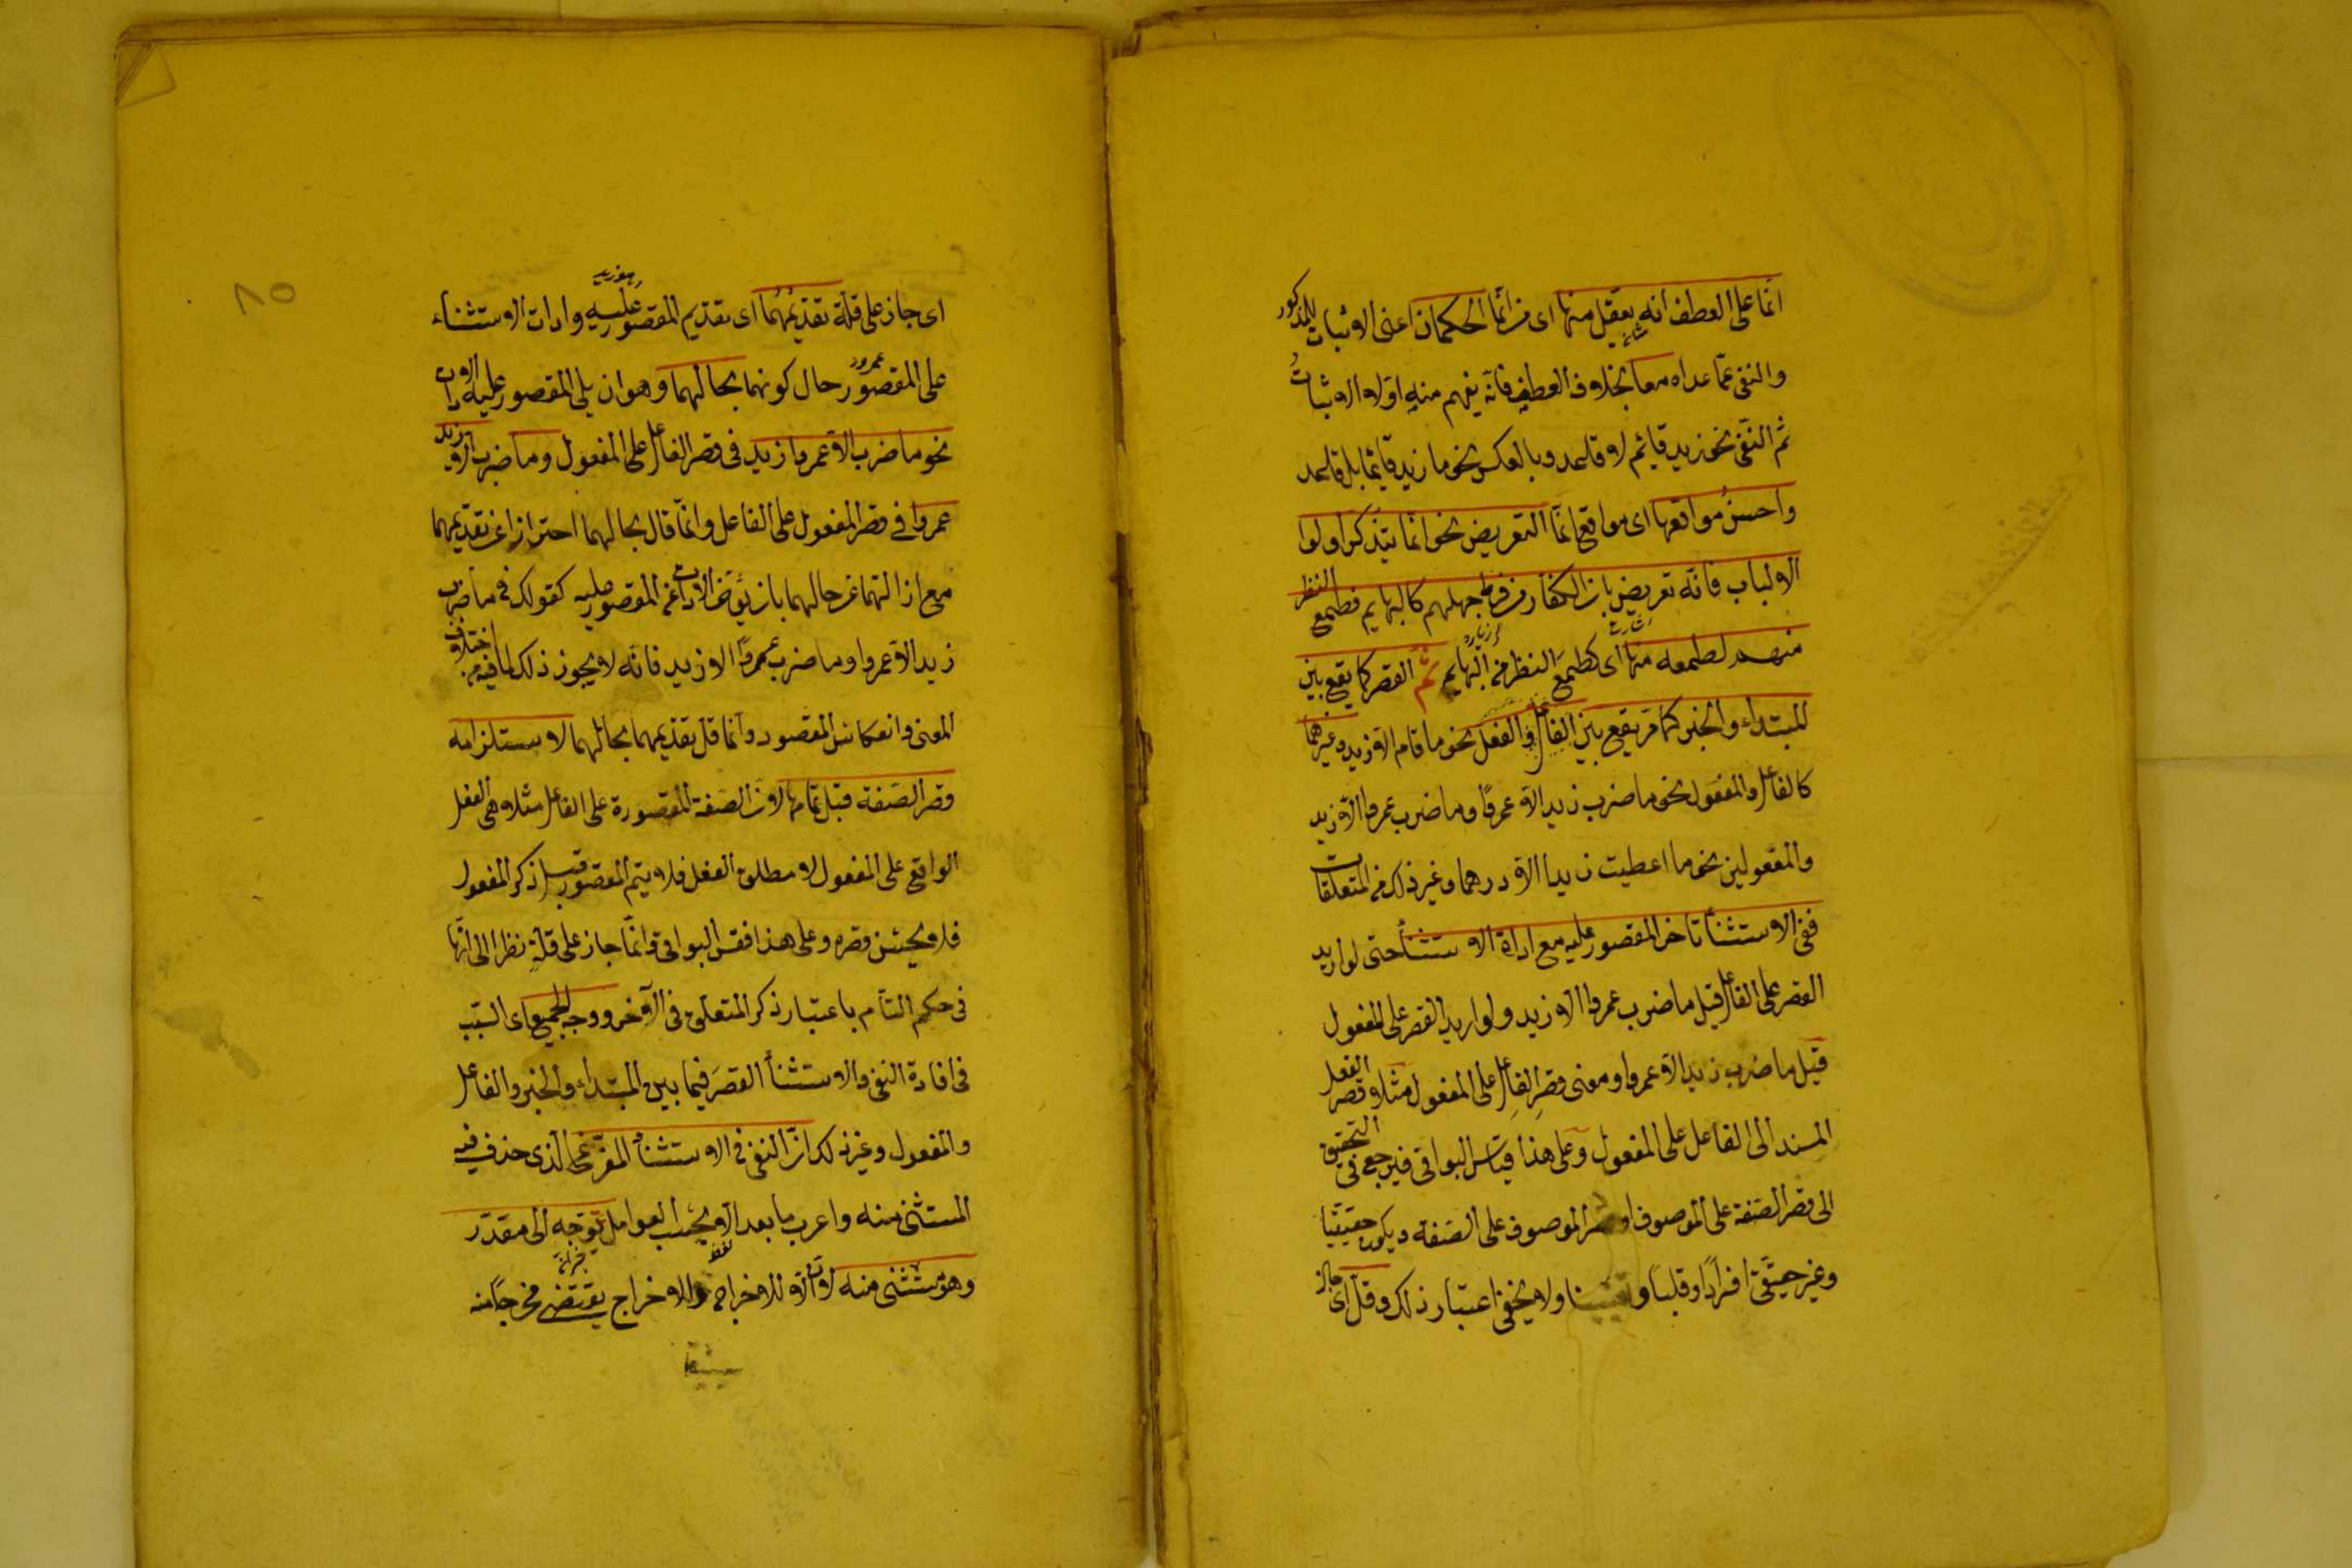 انما على العطف انه يعقل منها اى من انما الحكمان اعنى الاثبات للمذكور
والنفى عما عداه معا بخلاف العطف فانه يفهم منه اولا الاثبات
ثم النفى نحو زيد قائم لا قاعد وبالعكس نحو ما زيد قائما بل قاعد
واحسن مواقعها اى مواقع انما التعريض نحو انما يتذكر اولوا
الالباب فانه تعريض بان الكفار من فرط جهلهم كالبهايم فطمع النظر
منهم كطمعه منها اى كطمع النظر من البهايم ثم القصر كما يقع بين
المبتداء والخبر كما مر يقع بين الفاعل والفعل نحو ما قام الا زيد وغيرهما
كالفاعل والمفعول نحو ما ضرب زيد الا عمروا وما ضرب عمروا الا زيد
والمفعولين نحو ما اعطيت زيدا الا درهما وغير ذلك من المتعلقات
ففى الاستثنأ تاخر المقصور عليه مع اداة الاستثنأ حتى لو اريد
القصر على الفاعل قيل ما ضرب عمروا الا زيد ولو اريد القصر على المفعول
قيل ما ضرب زيد الا عمروا ومعنى قصر الفاعل على المفعول مثلا قصر الفعل
المسند الى الفاعل على المفعول وعلى هذا قياس البواقى فيرجع فى التحقيق
الى قصر الصفة على الموصوف او قصر الموصوف على الصفة ويكون حقيقيا
وغير حقيقى افرادا وقلبا و ولا يخفى اعتبار ذلك وقل اى جاز
اى جاز على قلة تقديمهما اى تقديم المقصور عليه وادات الاستثناء
على المقصور حال كونهما بحالهما وهو ان يلى المقصور عليه الادات
نحو ما ضرب الا عمروا زيد فى قصر الفاعل على المفعول وما ضرب الا زيد
عمروا فى قصر المفعول على الفاعل وانما قال بحالهما احترازا عن تقديمهما
مع ازالتهما عن حالهما بان يؤخر الادات عن المقصور عليه كقولك فى ما ضرب
زيد الا عمروا وما ضرب عمروا الا زيد فانه لا يجوز ذلك لما فيه من اختلاف
المعنى وانعكاس المقصود وانما قل تقديمهما بحالهما لاستلزامه
قصر الصفة قبل تمامها لان الصفة المقصورة على الفاعل مثلا هى الفعل
الواقع على المفعول لا مطلق الفعل فلا يتم المقصور قبل ذكر المفعول
فلا يحسن قصره وعلى هذا فقس البواقى وانما جاز على قلة نظرا الى انها
فى حكم التأم باعتبار ذكر المتعلق فى الآخر ووجه الجميع اى السبب
فى افادة النفى والاستثنأ القصر فيما بين المبتداء والخبر والفاعل
والمفعول وغير ذلك ان النفى فى الاستثنأ المفرغ الذى حذف فيه
المستثنى منه واعرب ما بعد الا بحسب العوامل يتوجه الى مقدر
وهو مستثنى منه لان الا للاخراج والاخراج يقتضى مخرجا منه